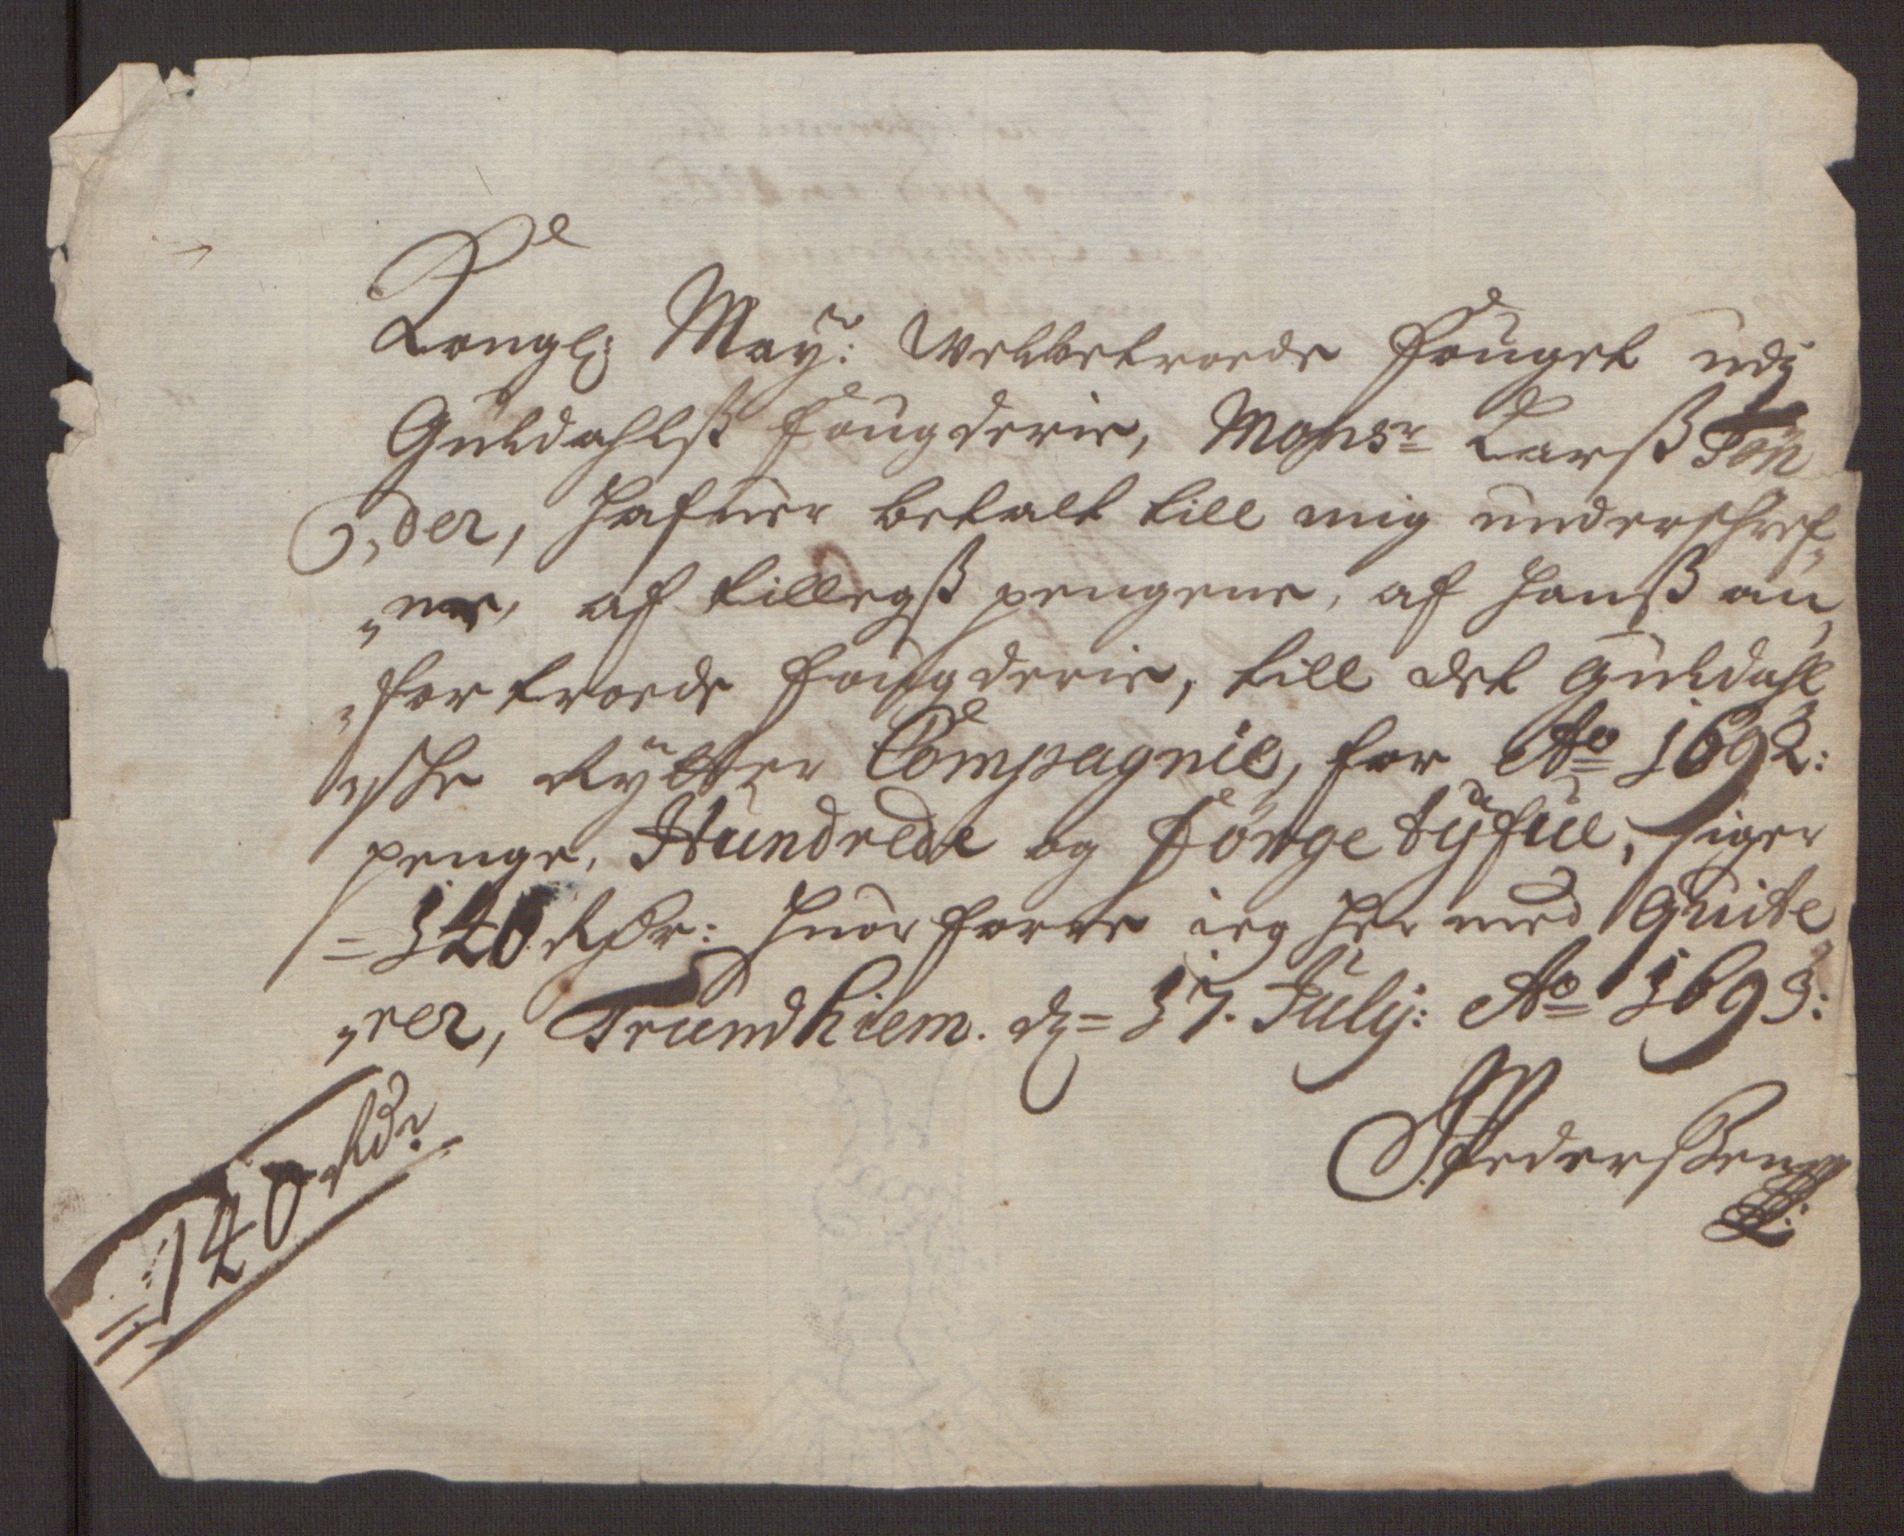 Kongl: May: Welbetroede fouget udj
Guldahlß fougderie, Monsr Larß Tön
„der, hafuer betalt till mig underschref„
„ne, af tillegß pengene, af hanß an„
„fortroede fougderie, till det Guldahl„
„sche Rytter Compagnie, for Ao 1692:
penge, Hundrede og förgetyfue, siger
= 140 Rdr: huor forre ieg her med Quite„
„rer, Trundhiem. d = 17. Julij: Ao 1693:
Pederßen
= 140 Rdr